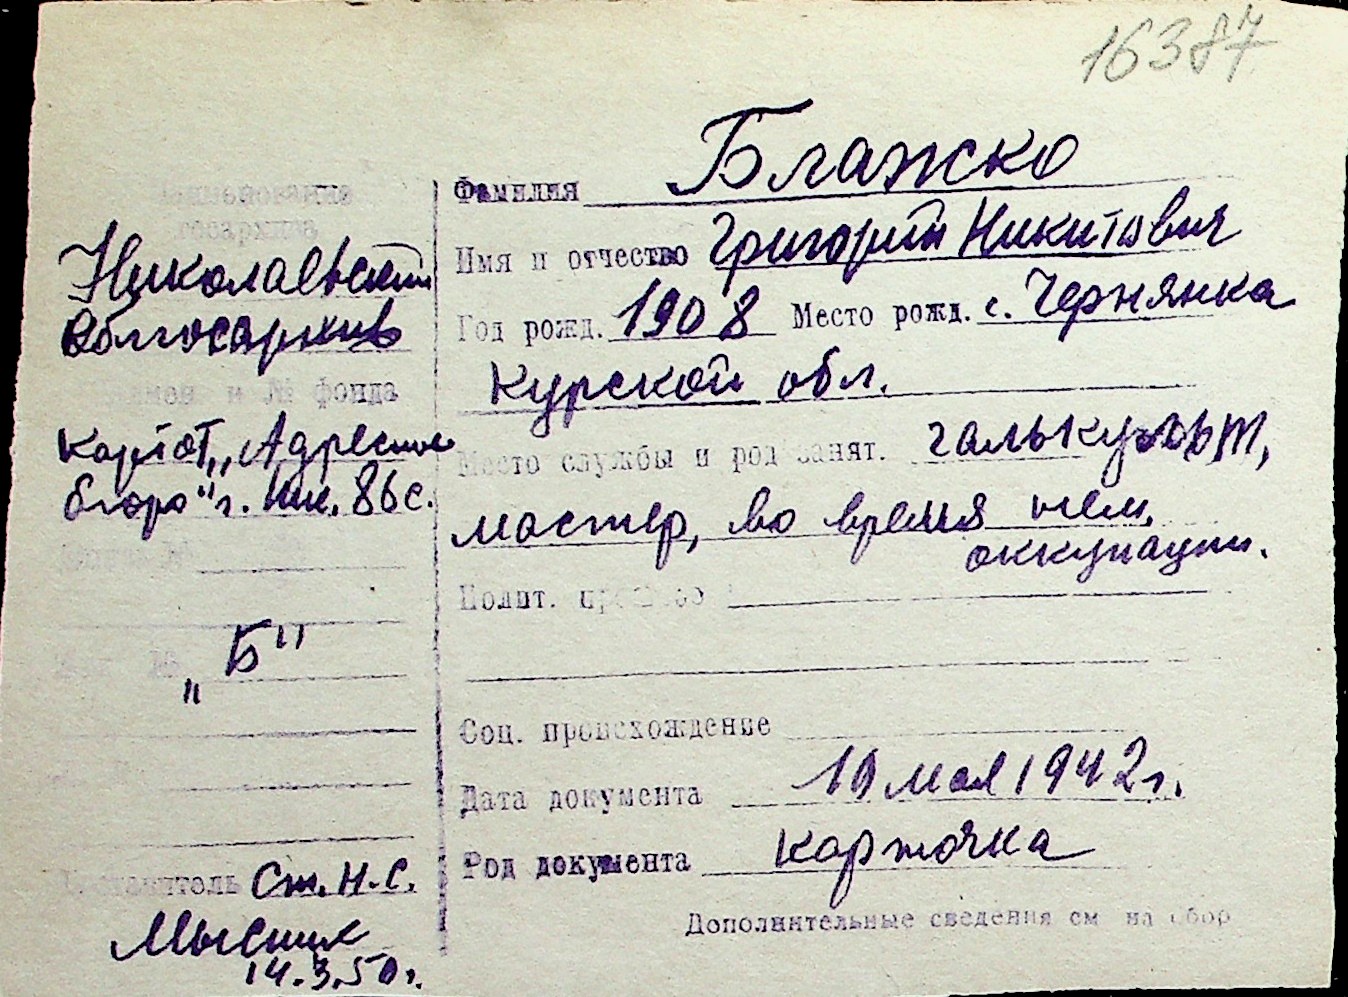 16387
Наименование
госархива
Николаевский
облгосархив
Наимен. и № фонда
Картот. „Адресное
бюро" г. Ник. 86 с.
„Б"
Составитель Ст. Н.С.
14.3.50 г.
Фамилия Блажско
Имя и отчество Григорий Никитович
Год рожд. 1908 Место рожд. с. Чернянка
Курской обл.
Место службы и род занят. галькульт,
мастер, во время нем.
оккупации.
Полит. прошлое
Соц. происхождение
Дата документа 19 мая 1942 г.
Род документа карточка
Дополнительные сведения см на обор